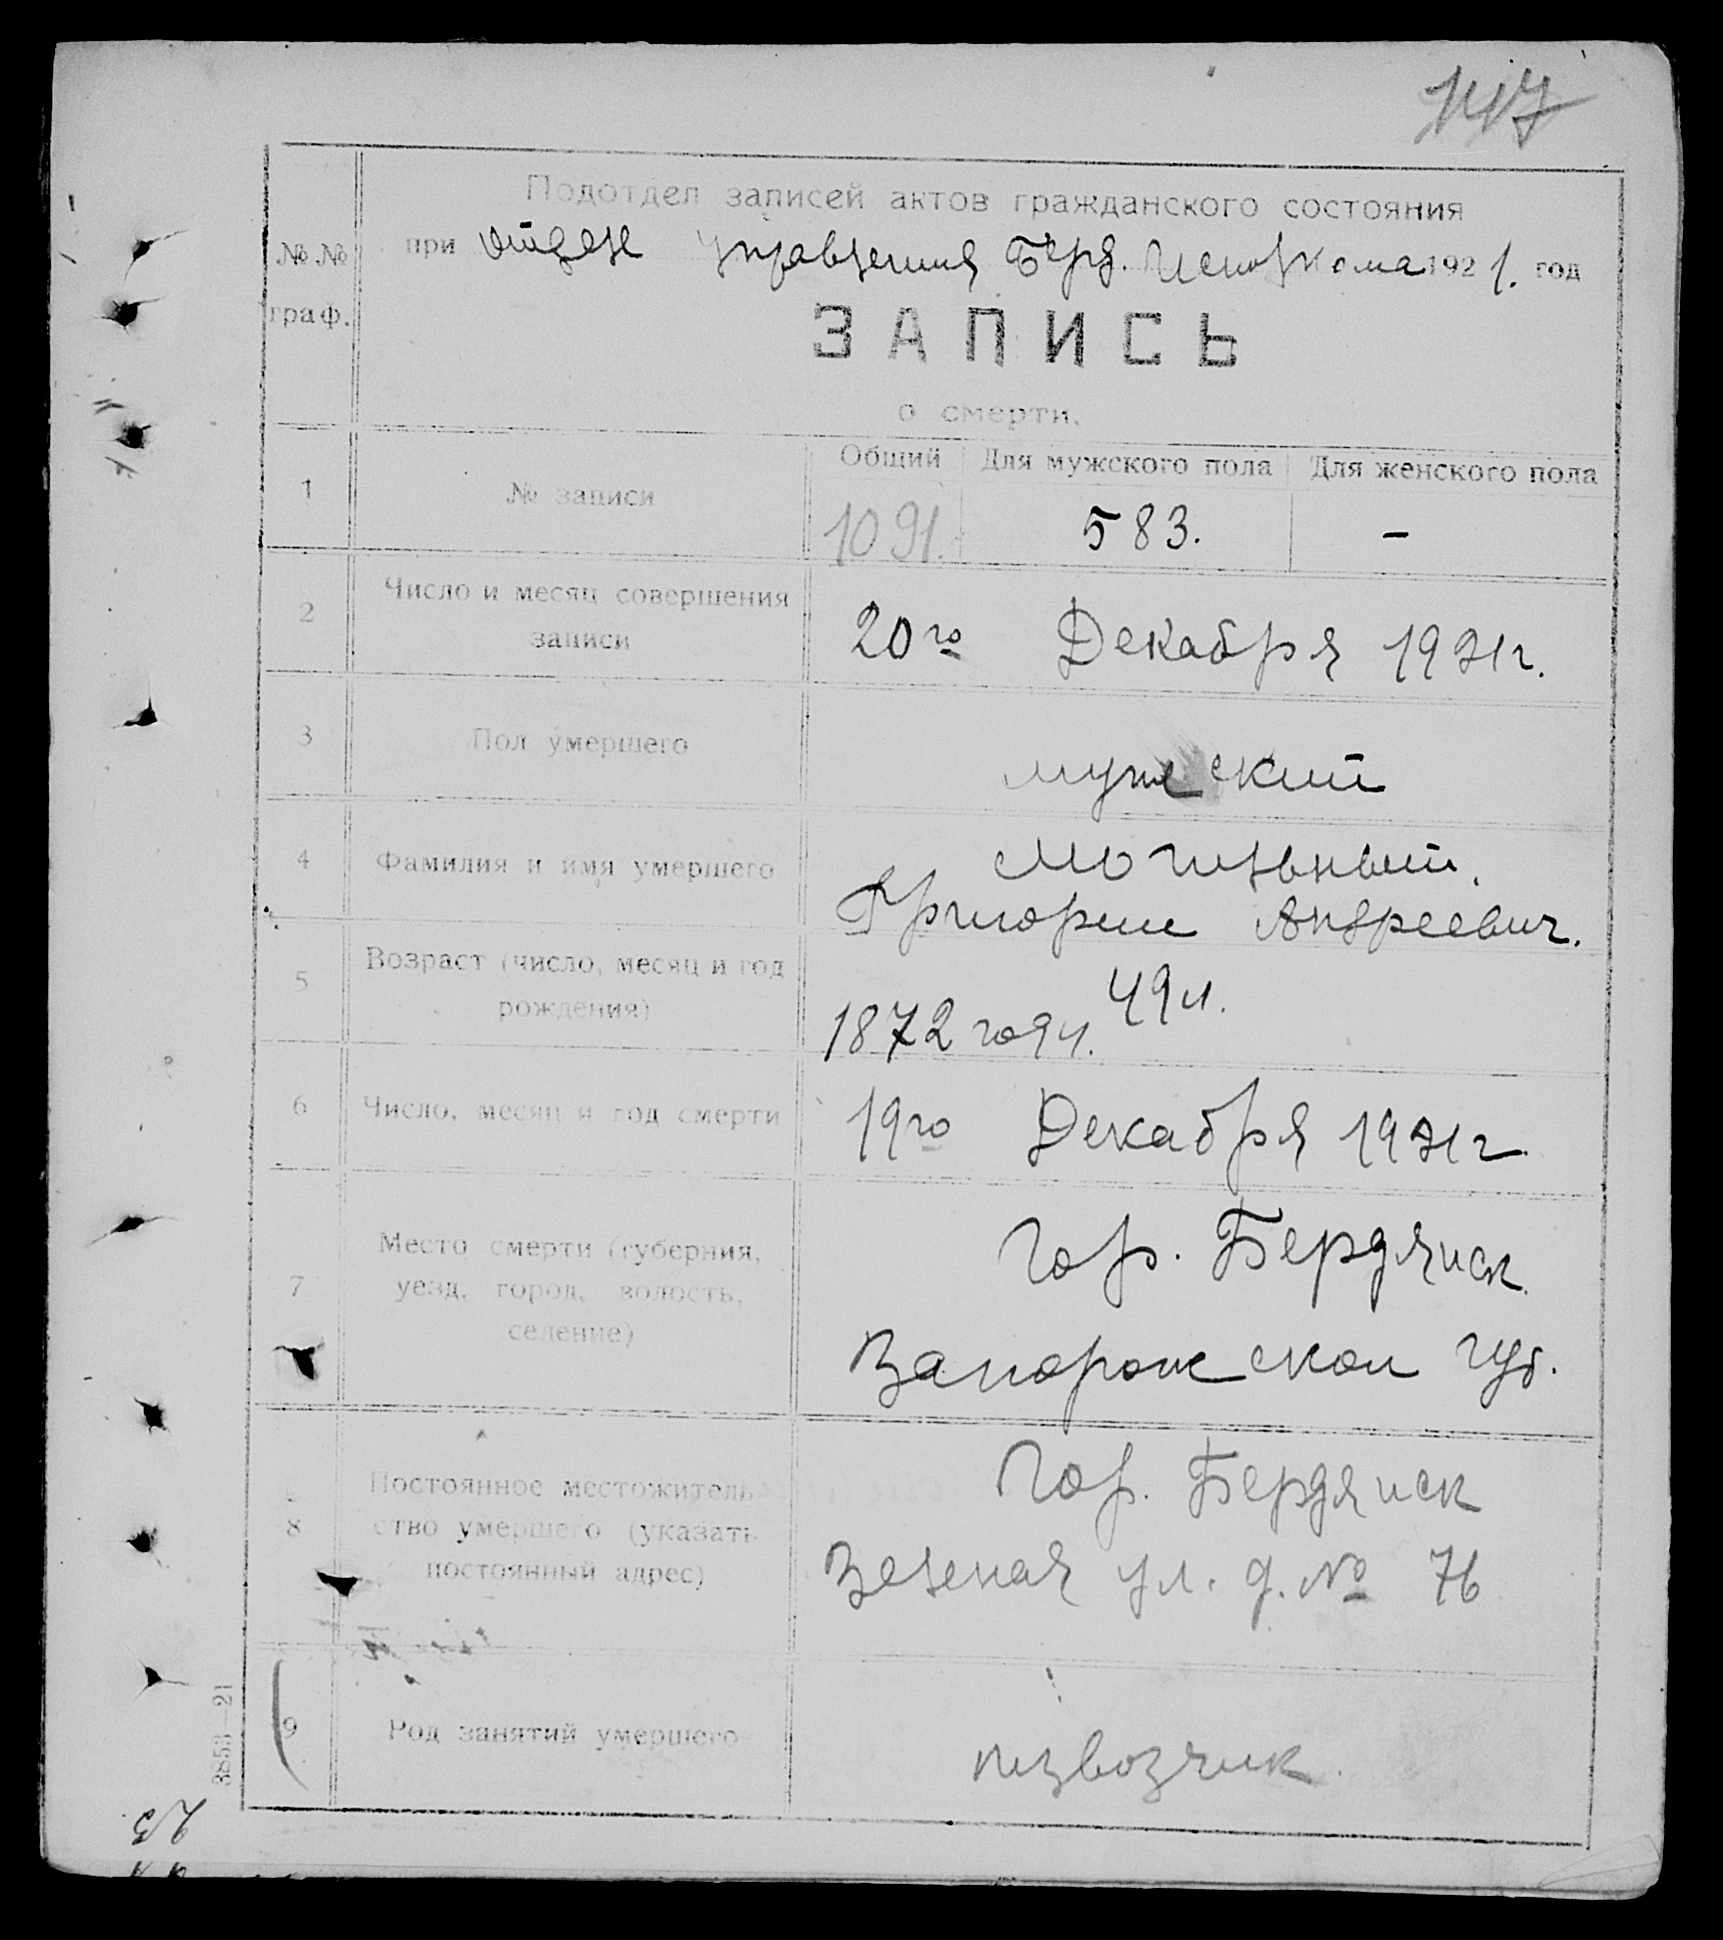 Подотдел записей актов гражданского состояния
№№ граф.
при отделе управления Берд. Исполкома 1921. год
ЗАПИСЬ
о смерти.
Общий Для мужского пола Для женского пола
1 № записи 1091. 583. –
2 Число и месяц совершения
записи
20го Декабря 1921г.
3 Пол умершего мужский
4 Фамилия и имя умершего
Могильный.
Григорий Андреевич.
5 Возраст (число, месяц и год
рождения)
49 л.
1872 года.
6 Число, месяц и год смерти 19го Декабря 1921г.
7 Место смерти (губерния,
уезд, город, волость,
селение)
Гор. Бердянск.
Запорожской губ.
8 Постоянное местожитель
ство умершего (указать
постоянный адрес)
Гор. Бердянск
Зеленая ул. д. № 76
9 Род занятий умершего извозчик.
3853—21
23